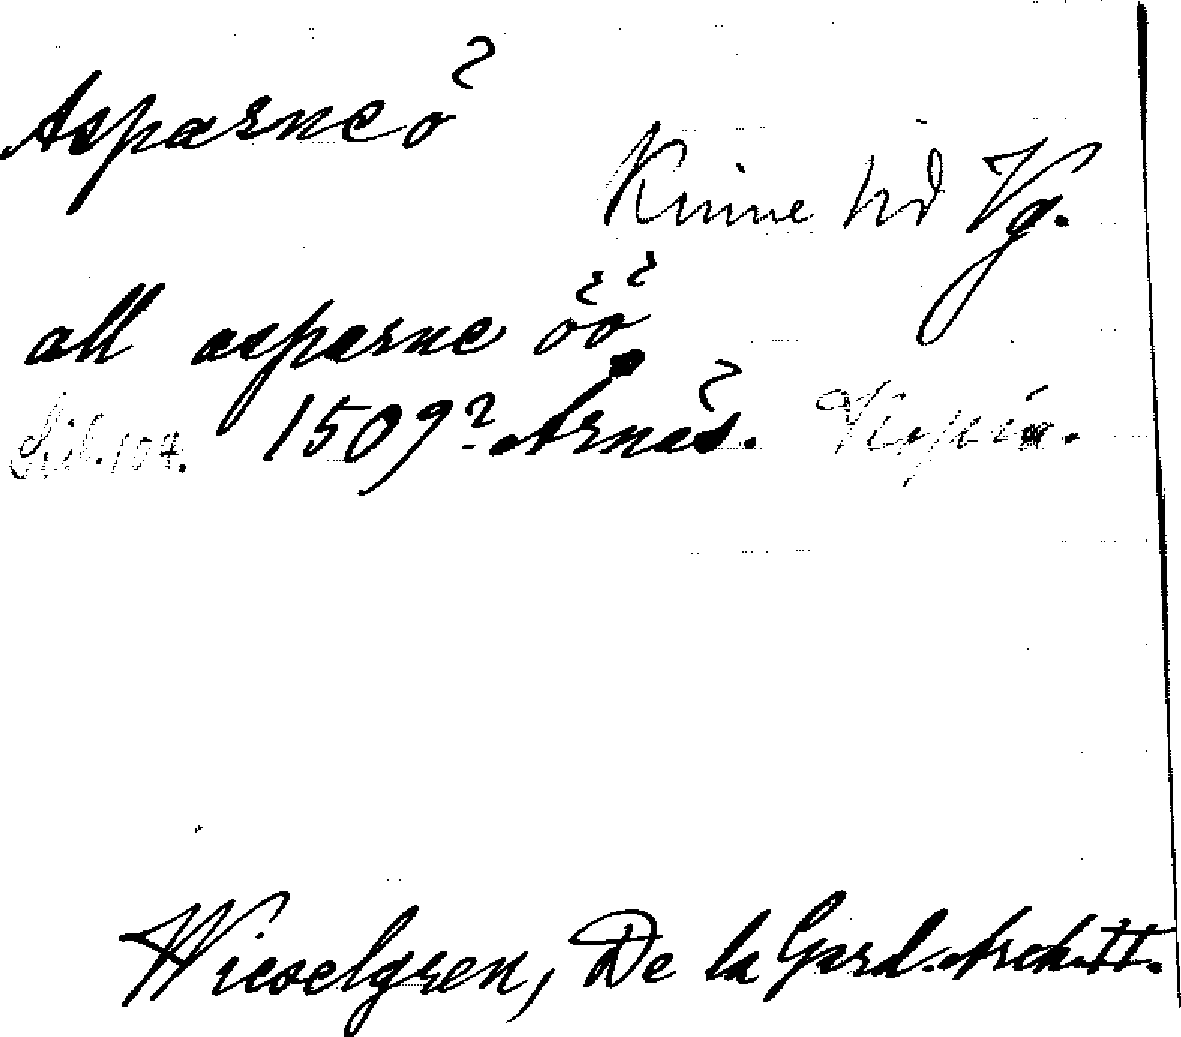 Asparneö
Kinne hd Vg.
all asparne öö
Sid. 107. 1509? Arnäs. Kopia.
Wieselgren, De la Gard. Arch. II.